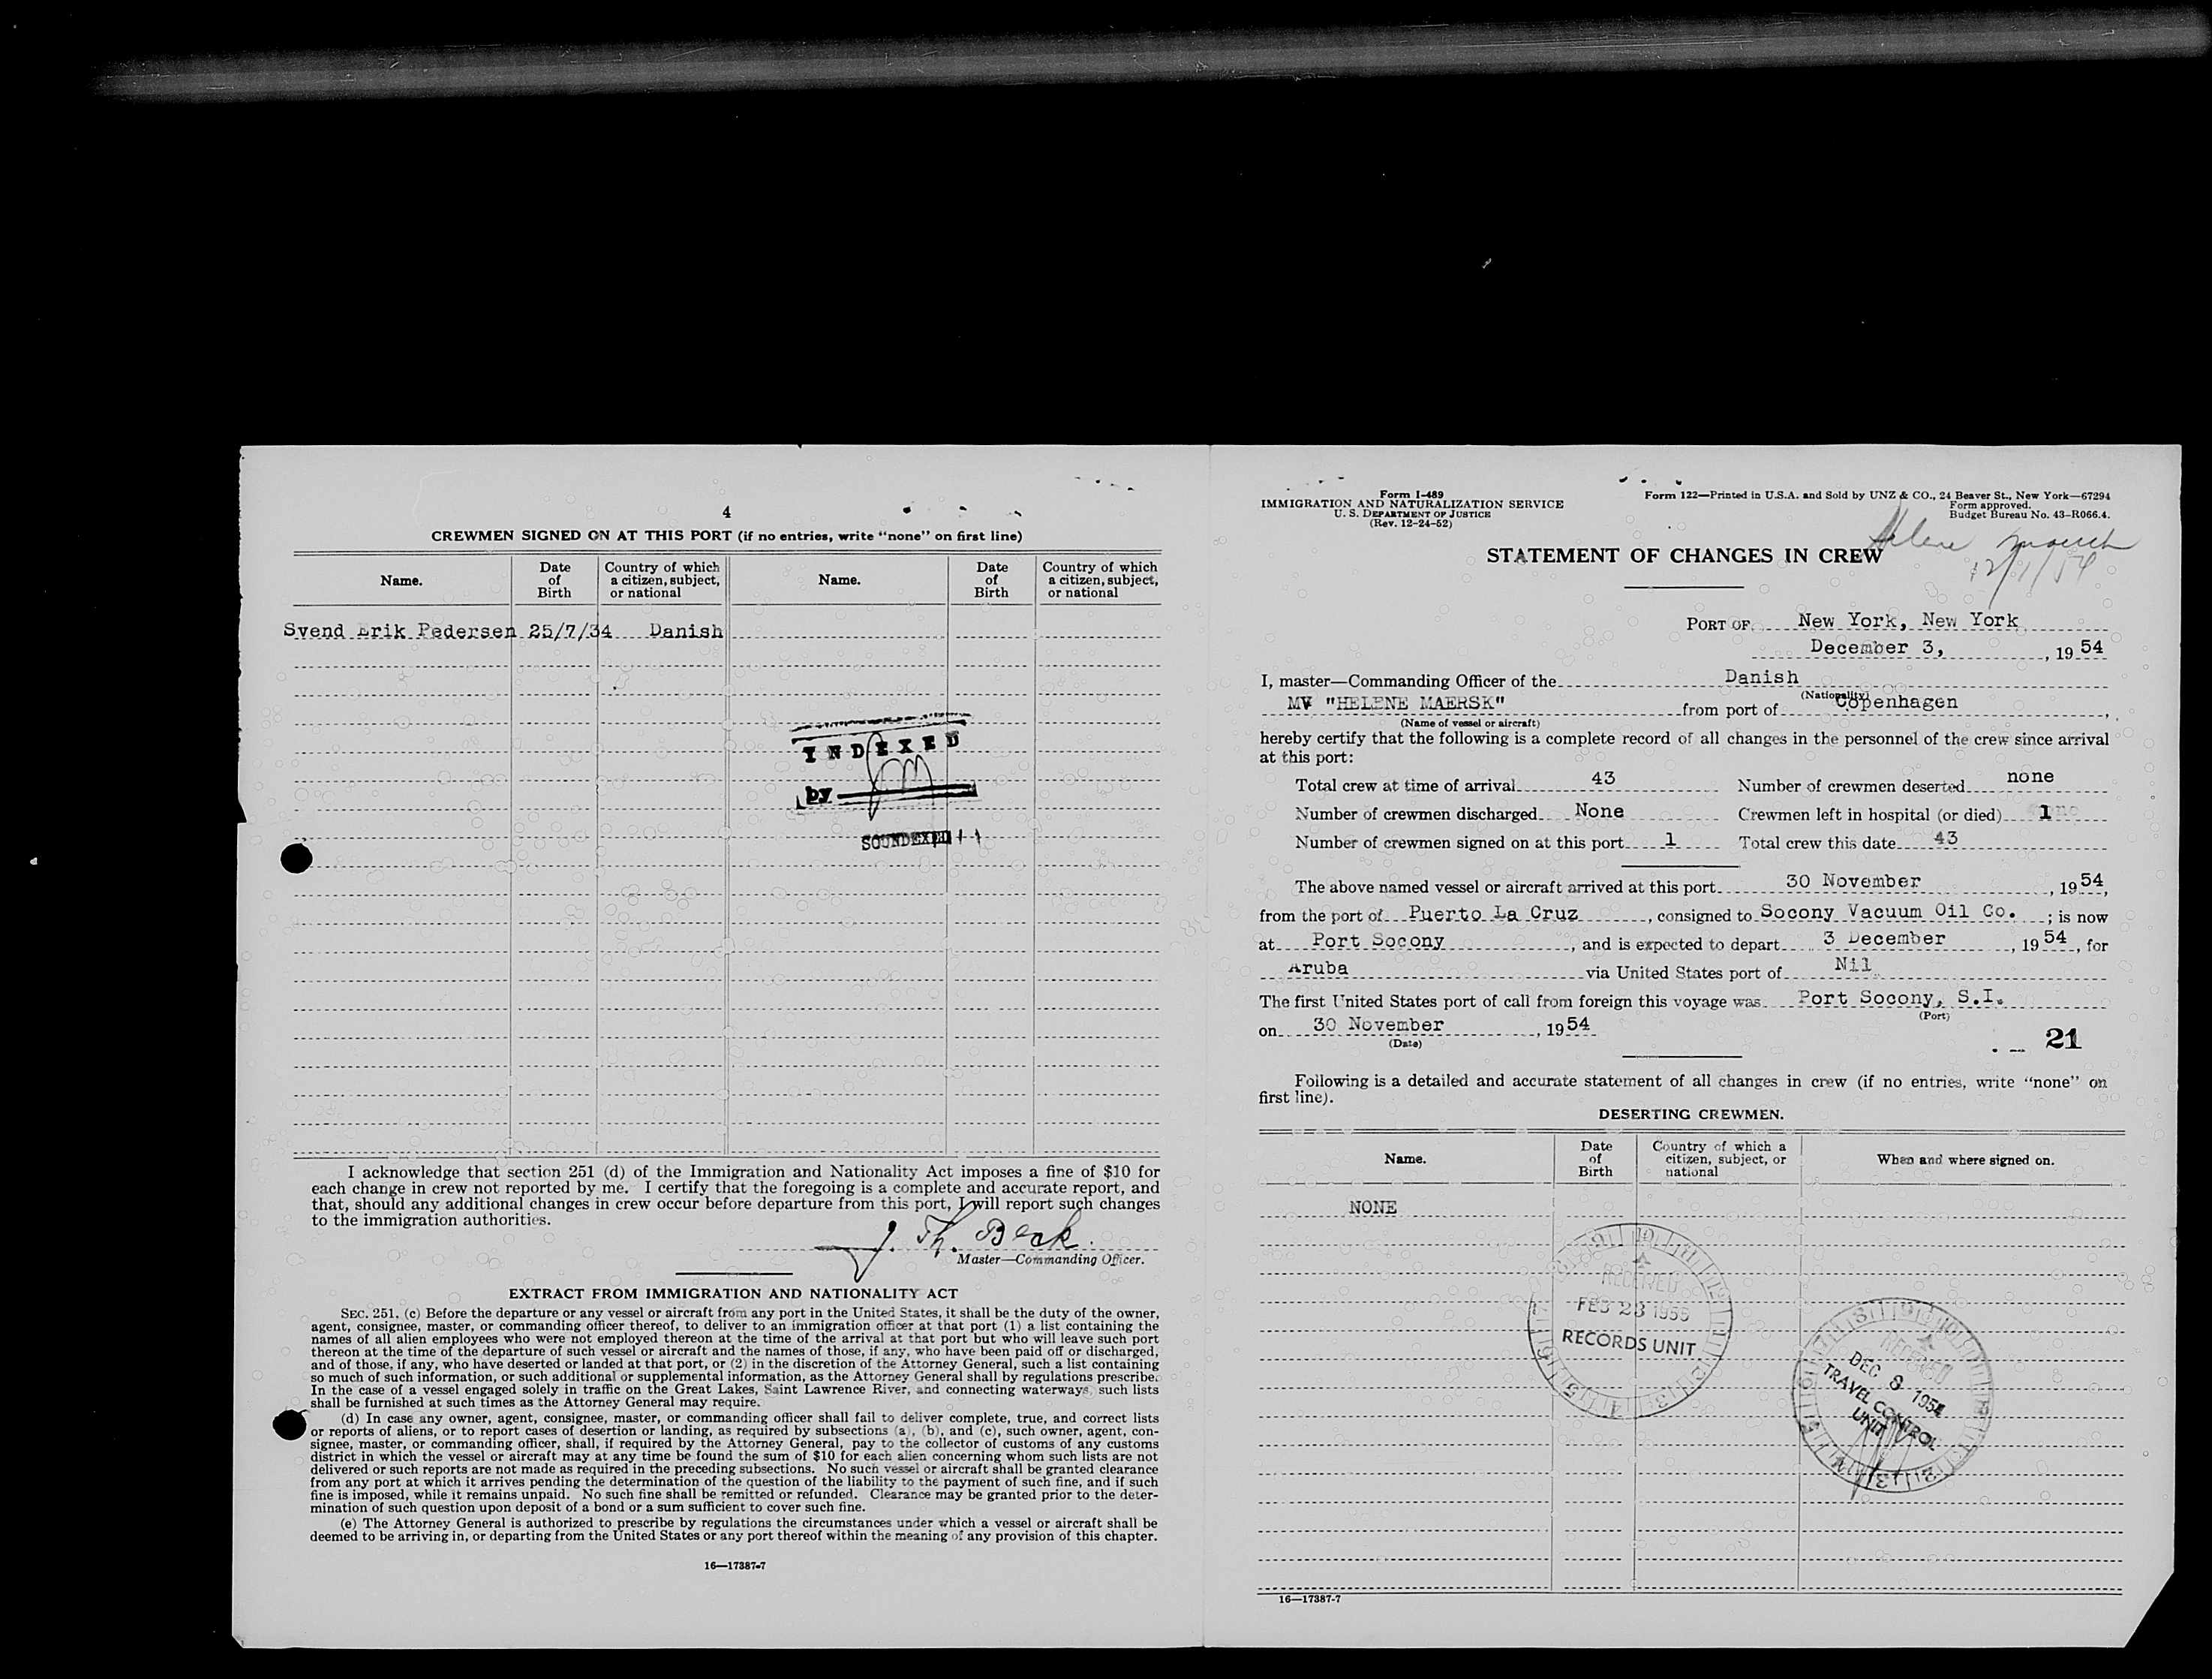 4
CREWMEN SIGNED ON AT THIS PORT (if no entries, write "none" on first line)
Name. Date of Birth Country of which a citizen, subject, or national Name. Date of Birth Country of which a citizen, subject, or national
Svend Erik Pedersen 25/7/34 Danish
INDEXED
by
SOUNDEXED
I acknowledge that section 251 (d) of the Immigration and Nationality Act imposes a fine of $10 for
each change in crew not reported by me. I certify that the foregoing is a complete and accurate report, and
that, should any additional changes in crew occur before departure from this port, I will report such changes
to the immigration authorities.
J. Th. Beck.
Master—Commanding Officer.
EXTRACT FROM IMMIGRATION AND NATIONALITY ACT
SEC. 251. (c) Before the departure or any vessel or aircraft from any port in the United States, it shall be the duty of the owner,
agent, consignee, master, or commanding officer thereof, to deliver to an immigration officer at that port (1) a list containing the
names of all alien employees who were not employed thereon at the time of the arrival at that port but who will leave such port
thereon at the time of the departure of such vessel or aircraft and the names of those, if any, who have been paid off or discharged,
and of those, if any, who have deserted or landed at that port, or (2) in the discretion of the Attorney General, such a list containing
so much of such information, or such additional or supplemental information, as the Attorney General shall by regulations prescribe.
In the case of a vessel engaged solely in traffic on the Great Lakes, Saint Lawrence River, and connecting waterways, such lists
shall be furnished at such times as the Attorney General may require.
(d) In case any owner, agent, consignee, master, or commanding officer shall fail to deliver complete, true, and correct lists
or reports of aliens, or to report cases of desertion or landing, as required by subsections (a), (b), and (c), such owner, agent, con-
signee, master, or commanding officer, shall, if required by the Attorney General, pay to the collector of customs of any customs
district in which the vessel or aircraft may at any time be found the sum of $10 for each alien concerning whom such lists are not
delivered or such reports are not made as required in the preceding subsections. No such vessel or aircraft shall be granted clearance
from any port at which it arrives pending the determination of the question of the liability to the payment of such fine, and if such
fine is imposed, while it remains unpaid. No such fine shall be remitted or refunded. Clearance may be granted prior to the deter-
mination of such question upon deposit of a bond or a sum sufficient to cover such fine.
(e) The Attorney General is authorized to prescribe by regulations the circumstances under which a vessel or aircraft shall be
deemed to be arriving in, or departing from the United States or any port thereof within the meaning of any provision of this chapter.
16—17387-7
Form I-489
IMMIGRATION AND NATURALIZATION SERVICE
U. S. DEPARTMENT OF JUSTICE
(Rev. 12-24-52)
Form 122—Printed in U.S.A. and Sold by UNZ & CO., 24 Beaver St., New York—67294
Form approved.
Budget Bureau No. 43-R066.4.
Helene
12/1/54
STATEMENT OF CHANGES IN CREW
PORT OF New York, New York
December 3, , 19 54
I, master—Commanding Officer of the Danish
(Nationality)
MV "HELENE MAERSK" from port of Copenhagen ,
(Name of vessel or aircraft)
hereby certify that the following is a complete record of all changes in the personnel of the crew since arrival
at this port:
Total crew at time of arrival 43 Number of crewmen deserted none
Number of crewmen discharged None Crewmen left in hospital (or died) 1
Number of crewmen signed on at this port 1 Total crew this date 43
The above named vessel or aircraft arrived at this port 30 November , 19 54,
from the port of Puerto La Cruz , consigned to Socony Vacuum Oil Co. ; is now
at Port Socony , and is expected to depart 3 December , 19 54 , for
Aruba via United States port of Nil
The first United States port of call from foreign this voyage was Port Socony, S.I.
(Port)
on 30 November , 19 54
(Date)
21
Following is a detailed and accurate statement of all changes in crew (if no entries, write "none" on
first line).
DESERTING CREWMEN.
Name. Date of Birth Country of which a citizen, subject, or national When and where signed on.
NONE
RECEIVED
FEB 23 1955
RECORDS UNIT
RECEIVED
DEC 8 1954
TRAVEL CONTROL
UNIT
16—17387-7